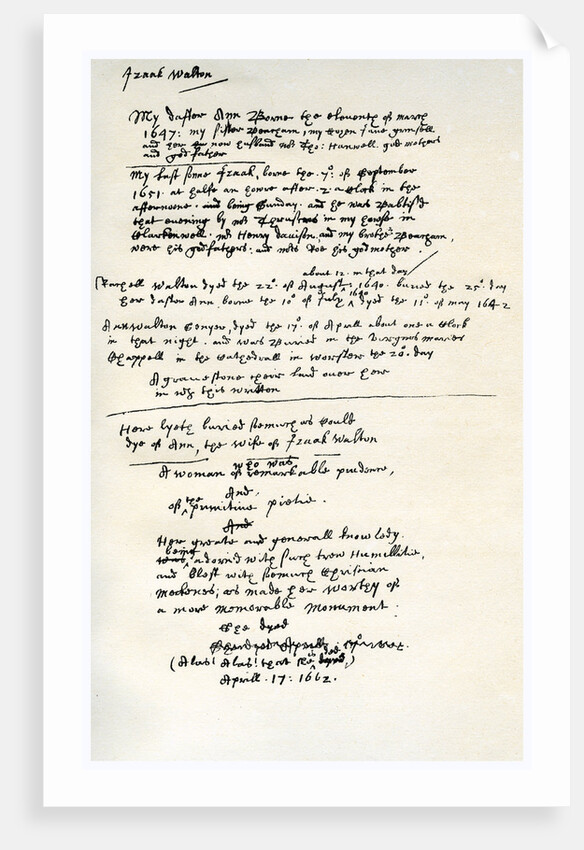 Izaak Walton
My dafter Ann Borne the eleventh of march
1647: my sister Beacham, my Cozen Jane Grinsell
and her now husband mr Tho: Hanwell. god mothers
and god father
My last sonne Izaak, borne the .7o. of September
1651 at halfe an howre after .2. a clock in the
afternoone . and being Sunday . and he was Baptis'd
that evening by mr Thruscros in my howse in
Clarkenwell . mr Henry Davison, and my brother Beacham,
were his godfathers . and mrs Roe his god mother .
about 12. in that day
Rachell Walton dyed the 22o. of August, 1640. buried the 25o. day
her dafter Ann borne the 10o of July 1640 dyed the 11o. of may 1642
Ann Walton Senyer, dyed the 17o. of Aprill about one a Clock
in that night . and was Buried in the Virgins maries
Chappell in the Cathedrall in Worster the 20o. day
A gravestone their laid over her
in wch this written
Here lyeth buried soemuch as Could
dye of Ann, the wife of Izaak Walton
who was
A woman of remarkable prudence,
And,
of the primitive pietie .
And
Her greate and generall knowledg
being
was adorn'd with such trew Humillitie,
and blest with soemuch Christian
meekenes; as made her worthy of
a more memorable Monument .
She dyed
(Alas! Alas! that she is ded,)
Aprill . 17: 1662.